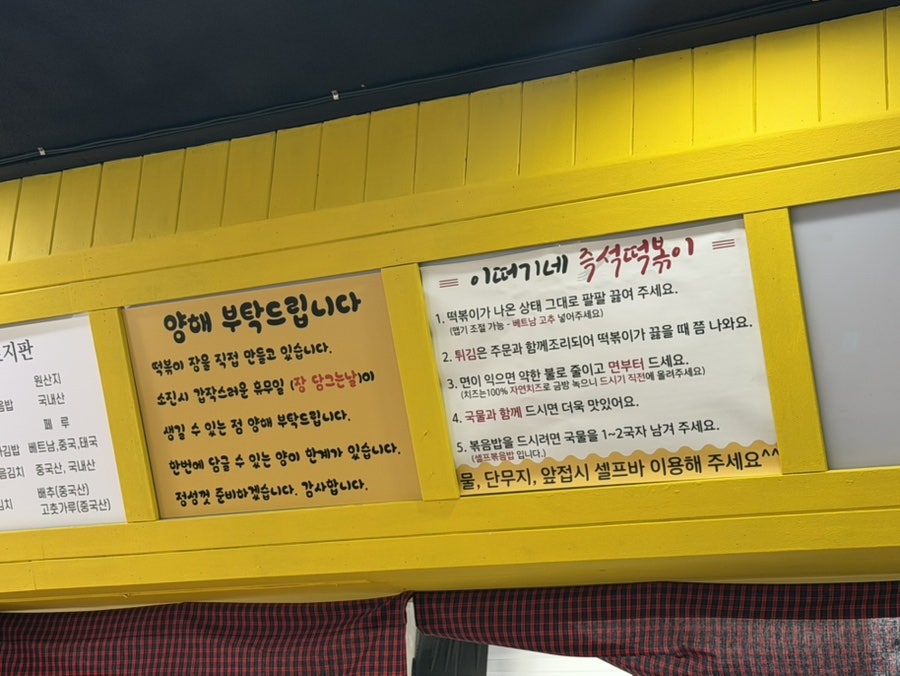 지판
원산지
국내산
페루
베트남,중국,태국
중국산, 국내산
배추(중국산)
고춧가루(중국산)
양해 부탁드립니다
떡볶이 장을 직접 만들고 있습니다.
소진시 갑작스러운 휴무일 (장 담그는날)이
생길 수 있는 점 양해 부탁드립니다.
한번에 담글 수 있는 양이 한계가 있습니다.
정성껏 준비하겠습니다. 감사합니다.
이떠기네 즉석떡볶이
1. 떡볶이가 나온 상태 그대로 팔팔 끓여 주세요.
(맵기 조절 가능 - 베트남 고추 넣어주세요)
2. 튀김은 주문과 함께조리되어 떡볶이가 끓을 때 쯤 나와요.
3. 면이 익으면 약한 불로 줄이고 면부터 드세요.
(치즈는100% 자연치즈로 금방 녹으니 드시기 직전에 올려주세요)
4. 국물과 함께 드시면 더욱 맛있어요.
5. 볶음밥을 드시려면 국물을 1~2국자 남겨 주세요.
(셀프볶음밥 입니다.)
물, 단무지, 앞접시 셀프바 이용해 주세요^^